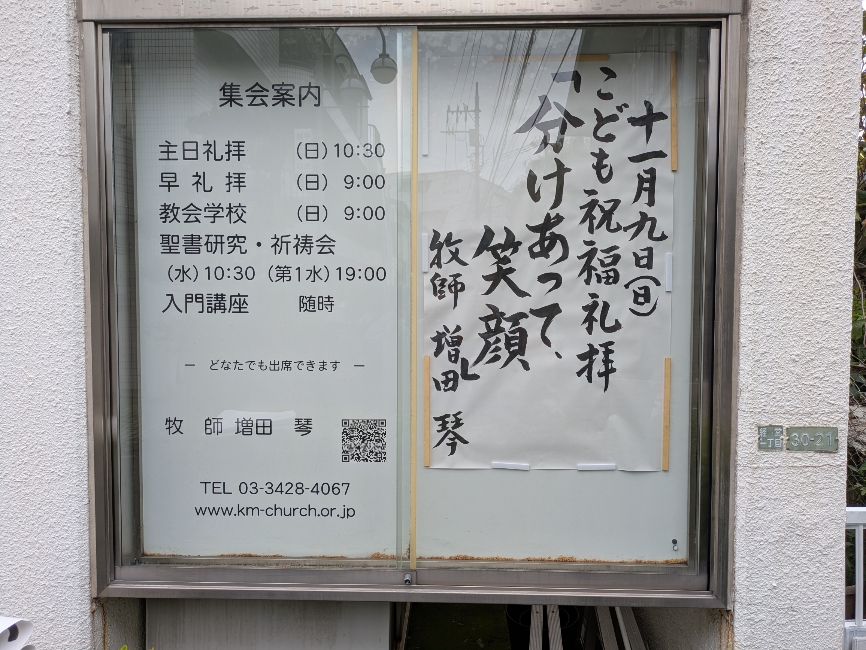 集会案内
主日礼拝 (日) 10:30
早礼拝 (日) 9:00
教会学校 (日) 9:00
聖書研究・祈祷会
(水) 10:30 (第1水) 19:00
入門講座 随時
― どなたでも出席できます ―
牧師 増田 琴
TEL 03-3428-4067
www.km-church.or.jp
十一月九日(日)
こども祝福礼拝
「分けあって、
笑顔」
牧師 増田 琴
30-21